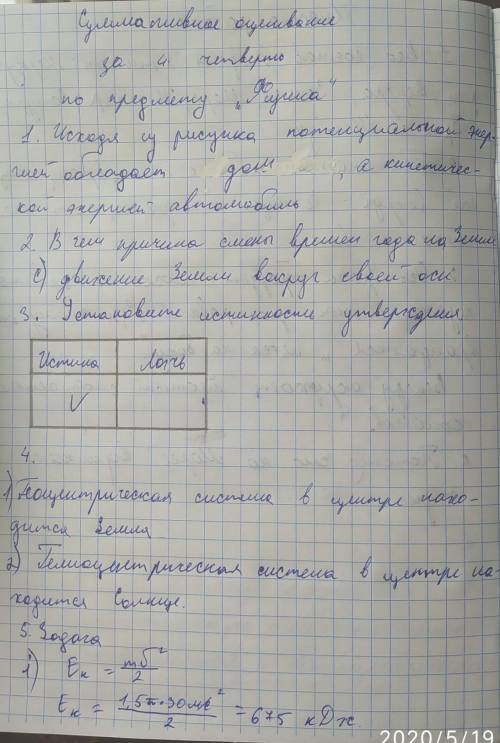 Суммативное оценивание
за 4 четверть
по предмету „Физика"
1. Исходя из рисунка потенциальной энер-
гией обладает дом, а кинетичес-
кой энергией автомобиль
2. В чем причина смены времен года на Земле
C) движение Земли вокруг своей оси.
3. Установите истинность утверждения
Истина Ложь
V
4.
1) Геоцентрическая система в центре нахо-
дится Земля
2) Гелиоцентрическая система в центре на-
ходится Солнце.
5. Задача
1) Eк = mϑ²/2
Eк = 1,5т·30м/с²/2 = 675 кДж.
2020/5/19